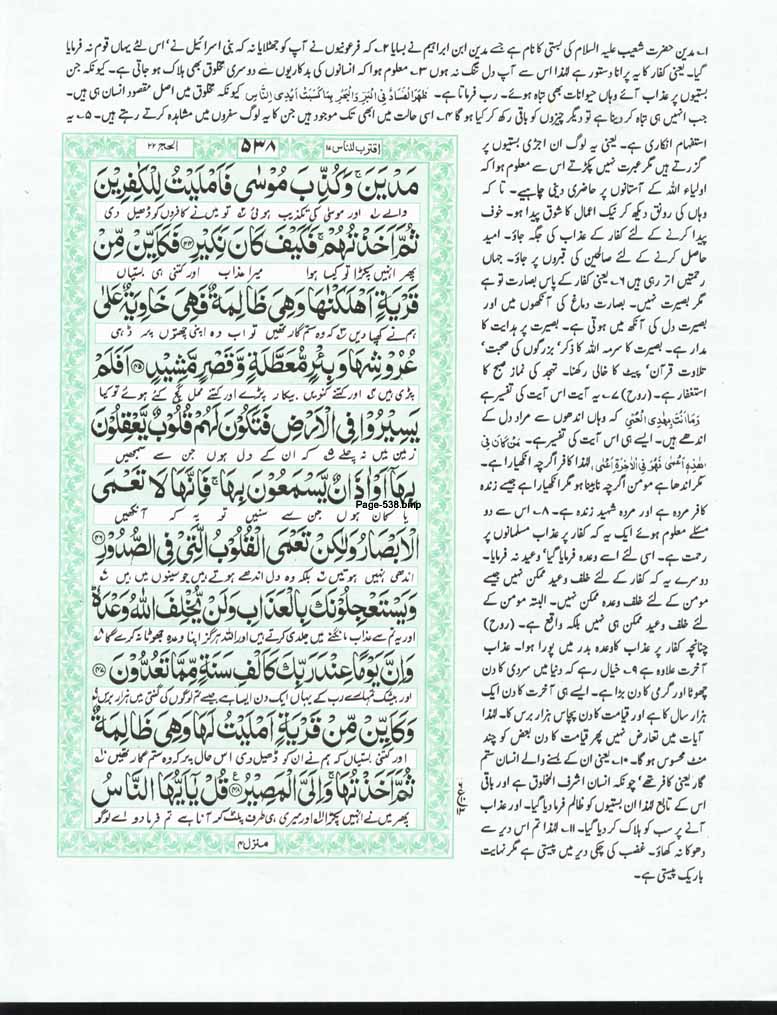 ۱؎ مدین حضرت شعیب علیہ السلام کی بستی کا نام ہے جسے مدین ابن ابراہیم نے بسایا ۲؎ کہ فرعونیوں نے آپ کو جھٹلایا نہ کہ بنی اسرائیل نے' اس لئے یہاں قوم نہ فرمایا
گیا۔ یعنی کفار کا یہ پرانا دستور ہے لہٰذا اس سے آپ دل تنگ نہ ہوں ۳؎ معلوم ہوا کہ انسانوں کی بدکاریوں سے دوسری مخلوق بھی ہلاک ہو جاتی ہے۔ کیونکہ جن
بستیوں پر عذاب آئے وہاں حیوانات بھی تباہ ہوئے۔ رب فرماتا ہے۔ ظَهَرَ الْفَسَادُ فِي الْبَرِّ وَالْبَحْرِ بِمَا كَسَبَتْ اَيْدِي النَّاسِ کیونکہ مخلوق میں اصل مقصود انسان ہی ہیں۔
جب انہیں ہی تباہ کر دینا ہے تو دیگر چیزوں کو باقی رکھ کر کیا ہو گا ۴؎ اسی حالت میں ابھی تک موجود ہیں جن کا یہ لوگ سفروں میں مشاہدہ کرتے رہتے ہیں۔ ۵؎ یہ
استفہام انکاری ہے۔ یعنی یہ لوگ ان اجڑی بستیوں پر
گزرتے ہیں مگر عبرت نہیں پکڑتے اس سے معلوم ہوا کہ
اولیاء اللہ کے آستانوں پر حاضری دینی چاہیے۔ تا کہ
وہاں کی رونق دیکھ کر نیک اعمال کا شوق پیدا ہو۔ خوف
پیدا کرنے کے لئے کفار کے عذاب کی جگہ جاؤ۔ امید
حاصل کرنے کے لئے صالحین کی قبروں پر جاؤ۔ جہاں
رحمتیں اتر رہی ہیں ۶؎ یعنی کفار کے پاس بصارت تو ہے
مگر بصیرت نہیں۔ بصارت دماغ کی آنکھوں میں اور
بصیرت دل کی آنکھ میں ہوتی ہے۔ بصیرت پر ہدایت کا
مدار ہے۔ بصیرت کا سرمہ اللہ کا ذکر' بزرگوں کی صحبت'
تلاوت قرآن' پیٹ کا خالی رکھنا۔ تہجد کی نماز صبح کا
استغفار ہے۔ (روح) ۷؎ یہ آیت اس آیت کی تفسیر ہے
وَمَا اَنْتَ بِهٰدِي الْعُمْيِ کہ وہاں اندھوں سے مراد دل کے
اندھے ہیں۔ ایسے ہی اس آیت کی تفسیر ہے۔ مَنْ كَانَ فِيْ
هٰذِهٖ اَعْمٰى فَهُوَ فِي الْاٰخِرَةِ اَعْمٰى لہٰذا کافر اگرچہ انکھیارا ہے۔
مگر اندھا ہے مومن اگرچہ نابینا ہو مگر انکھیارا ہے جیسے زندہ
کافر مردہ ہے اور مردہ شہید زندہ ہے۔ ۸؎ اس سے دو
مسئلے معلوم ہوئے ایک یہ کہ کفار پر عذاب مسلمانوں پر
رحمت ہے۔ اسی لئے اسے وعدہ فرمایا گیا' وعید نہ فرمایا۔
دوسرے یہ کہ کفار کے لئے خلف وعید ممکن نہیں جیسے
مومن کے لئے خلف وعدہ ممکن نہیں۔ البتہ مومن کے
لئے خلف وعید ممکن ہی نہیں بلکہ واقع ہے۔ (روح)
چنانچہ کفار پر عذاب کا وعدہ بدر میں پورا ہوا۔ عذاب
آخرت علاوہ ہے ۹؎ خیال رہے کہ دنیا میں سردی کا دن
چھوٹا اور گرمی کا دن بڑا ہے۔ ایسے ہی آخرت کا دن ایک
ہزار سال کا ہے اور قیامت کا دن پچاس ہزار برس کا۔ لہٰذا
آیات میں تعارض نہیں پھر قیامت کا دن بعض کو چند
منٹ محسوس ہو گا۔ ۱۰؎ یعنی ان کے بسنے والے انسان ستم
گار یعنی کافر تھے' چونکہ انسان اشرف المخلوق ہے اور باقی
اس کے تابع لہٰذا ان بستیوں کو ظالم فرما دیا گیا۔ اور عذاب
آنے پر سب کو ہلاک کر دیا گیا۔ ۱۱؎ لہٰذا تم اس دیر سے
دھوکا نہ کھاؤ۔ غضب کی چکی دیر میں پیستی ہے مگر نہایت
باریک پیستی ہے۔
اقترب للناس ۱۷
۵۳۸
الحج ۲۲
مَدْيَنَ ۚ وَكُذِّبَ مُوْسٰى فَاَمْلَيْتُ لِلْكٰفِرِيْنَ
والے ۱؎ اور موسٰی کی تکذیب ہوئی ۲؎ تو میں نے کافروں کو ڈھیل دی
ثُمَّ اَخَذْتُهُمْ ۚ فَكَيْفَ كَانَ نَكِيْرِ ﴿۴۴﴾ فَكَاَيِّنْ مِّنْ
پھر انہیں پکڑا تو کیسا ہوا میرا عذاب اور کتنی ہی بستیاں
قَرْيَةٍ اَهْلَكْنٰهَا وَهِيَ ظَالِمَةٌ فَهِيَ خَاوِيَةٌ عَلٰى
ہم نے کھپا دیں ۳؎ کہ وہ ستم گار تھیں تو اب وہ اپنی چھتوں پر ڈھی
عُرُوْشِهَا وَبِئْرٍ مُّعَطَّلَةٍ وَّقَصْرٍ مَّشِيْدٍ ﴿۴۵﴾ اَفَلَمْ
پڑی ہیں ۴؎ اور کتنے کنویں بیکار پڑے اور کتنے محل گچ کئے ہوئے تو کیا
يَسِيْرُوْا فِي الْاَرْضِ فَتَكُوْنَ لَهُمْ قُلُوْبٌ يَّعْقِلُوْنَ
زمین میں نہ چلے ۵؎ کہ ان کے دل ہوں جن سے سمجھیں
بِهَا اَوْ اٰذَانٌ يَّسْمَعُوْنَ بِهَا ۚ فَاِنَّهَا لَا تَعْمَى
Page-538.bmp
یا کان ہوں جن سے سنیں تو یہ کہ آنکھیں
الْاَبْصَارُ وَلٰكِنْ تَعْمَى الْقُلُوْبُ الَّتِيْ فِي الصُّدُوْرِ ﴿۴۶﴾
اندھی نہیں ہوتیں ۶؎ بلکہ وہ دل اندھے ہوتے ہیں جو سینوں میں ہیں ۷؎
وَيَسْتَعْجِلُوْنَكَ بِالْعَذَابِ وَلَنْ يُّخْلِفَ اللّٰهُ وَعْدَهٗ ؕ
اور یہ تم سے عذاب مانگنے میں جلدی کرتے ہیں اور اللہ ہرگز اپنا وعدہ جھوٹا نہ کرے گا ۸؎
وَاِنَّ يَوْمًا عِنْدَ رَبِّكَ كَاَلْفِ سَنَةٍ مِّمَّا تَعُدُّوْنَ ﴿۴۷﴾
اور بیشک تمہارے رب کے یہاں ایک دن ایسا ہے جیسے تم لوگوں کی گنتی میں ہزار برس ۹؎
وَكَاَيِّنْ مِّنْ قَرْيَةٍ اَمْلَيْتُ لَهَا وَهِيَ ظَالِمَةٌ
اور کتنی بستیاں کہ ہم نے ان کو ڈھیل دی اس حال پر کہ وہ ستم گار تھیں ۱۰؎
ثُمَّ اَخَذْتُهَا ۚ وَاِلَيَّ الْمَصِيْرُ ﴿۴۸﴾ قُلْ يٰٓاَيُّهَا النَّاسُ
پھر میں نے انہیں پکڑا ۱۱؎ اور میری ہی طرف پلٹ کر آنا ہے تم فرما دو اے لوگو
منزل ۴